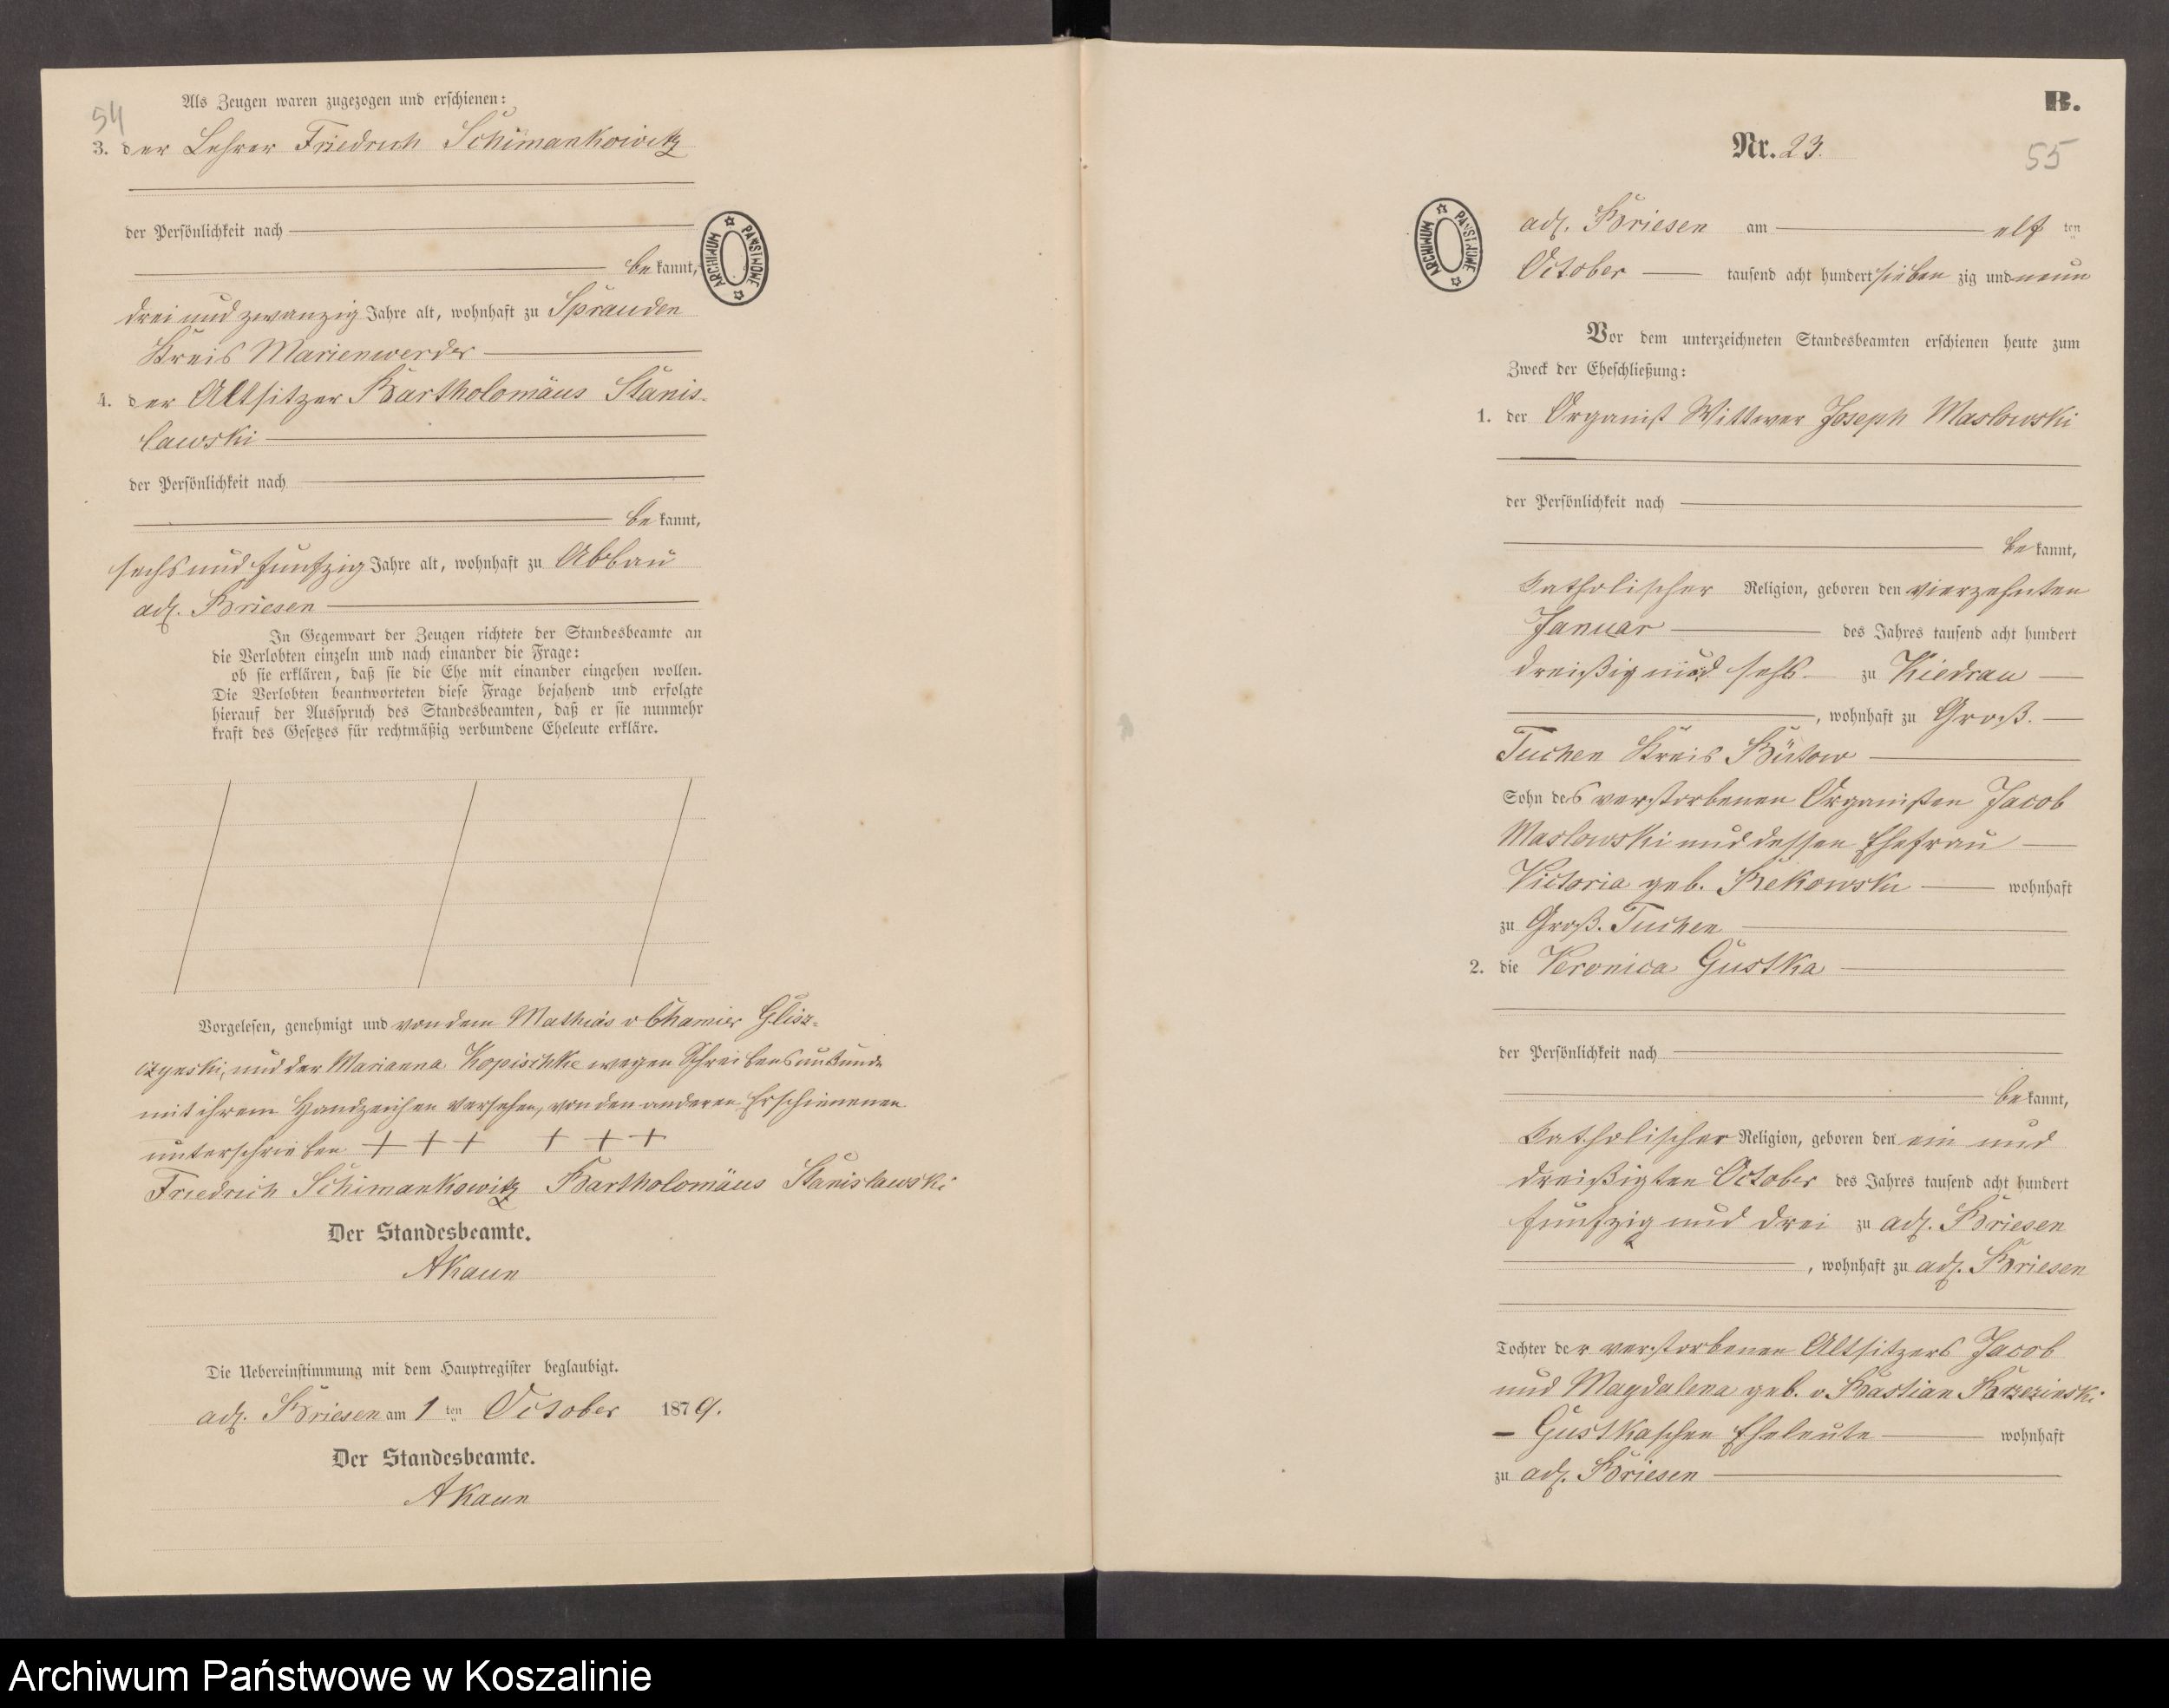 54
Als Zeugen waren zugezogen und erschienen:
3. der Lehrer Friedrich Schimankowitz
der Persönlichkeit nach
bekannt,
drei und zwanzig Jahre alt, wohnhaft zu Sprauden
Kreis Marienwerder
4. der Altsitzer Bartholomäus Stanis-
lawski
der Persönlichkeit nach
bekannt,
sechs und funfzig Jahre alt, wohnhaft zu Abbau
adl. Briesen
In Gegenwart der Zeugen richtete der Standesbeamte an
die Verlobten einzeln und nach einander die Frage:
ob sie erklären, daß sie die Ehe mit einander eingehen wollen.
Die Verlobten beantworteten diese Frage bejahend und erfolgte
hierauf der Ausspruch des Standesbeamten, daß er sie nunmehr
kraft des Gesetzes für rechtmäßig verbundene Eheleute erkläre.
Vorgelesen, genehmigt und von dem Mathias v Chamier Glisz-
czynski, und der Marianna Kopischke wegen Schreibensunkunde
mit ihrem Handzeichen versehen, von den anderen Erschienenen
unterschrieben + + + + + +
Friedrich Schimankowitz Bartholomäus Stanislawski
Der Standesbeamte.
AKaun
Die Uebereinstimmung mit dem Hauptregister beglaubigt.
adl. Briesen am 1 ten October 1879.
Der Standesbeamte.
AKaun
ARCHIWUM PAŃSTWOWE
B.
Nr. 23.
55
ARCHIWUM PAŃSTWOWE
adl. Briesen am elf ten
October tausend acht hundert sieben zig und neun
Vor dem unterzeichneten Standesbeamten erschienen heute zum
Zweck der Eheschließung:
1. der Organist Wittwer Joseph Maslowski
der Persönlichkeit nach
bekannt,
katholischer Religion, geboren den vierzehnten
Januar des Jahres tausend acht hundert
dreißig und sechs zu Kiedrau
, wohnhaft zu Groß.
Tuchen Kreis Bütow
Sohn des verstorbenen Organisten Jacob
Maslowski und dessen Ehefrau
Victoria geb. Rekowski wohnhaft
zu Groß. Tuchen
2. die Veronica Gustka
der Persönlichkeit nach
bekannt,
katholischer Religion, geboren den ein und
dreißigten October des Jahres tausend acht hundert
funfzig und drei zu adl. Briesen
, wohnhaft zu adl. Briesen
Tochter der verstorbenen Altsitzers Jacob
und Magdalena geb. v Bastian Brzezinski
- Gustkaschen Eheleute wohnhaft
zu adl. Briesen
Archiwum Państwowe w Koszalinie